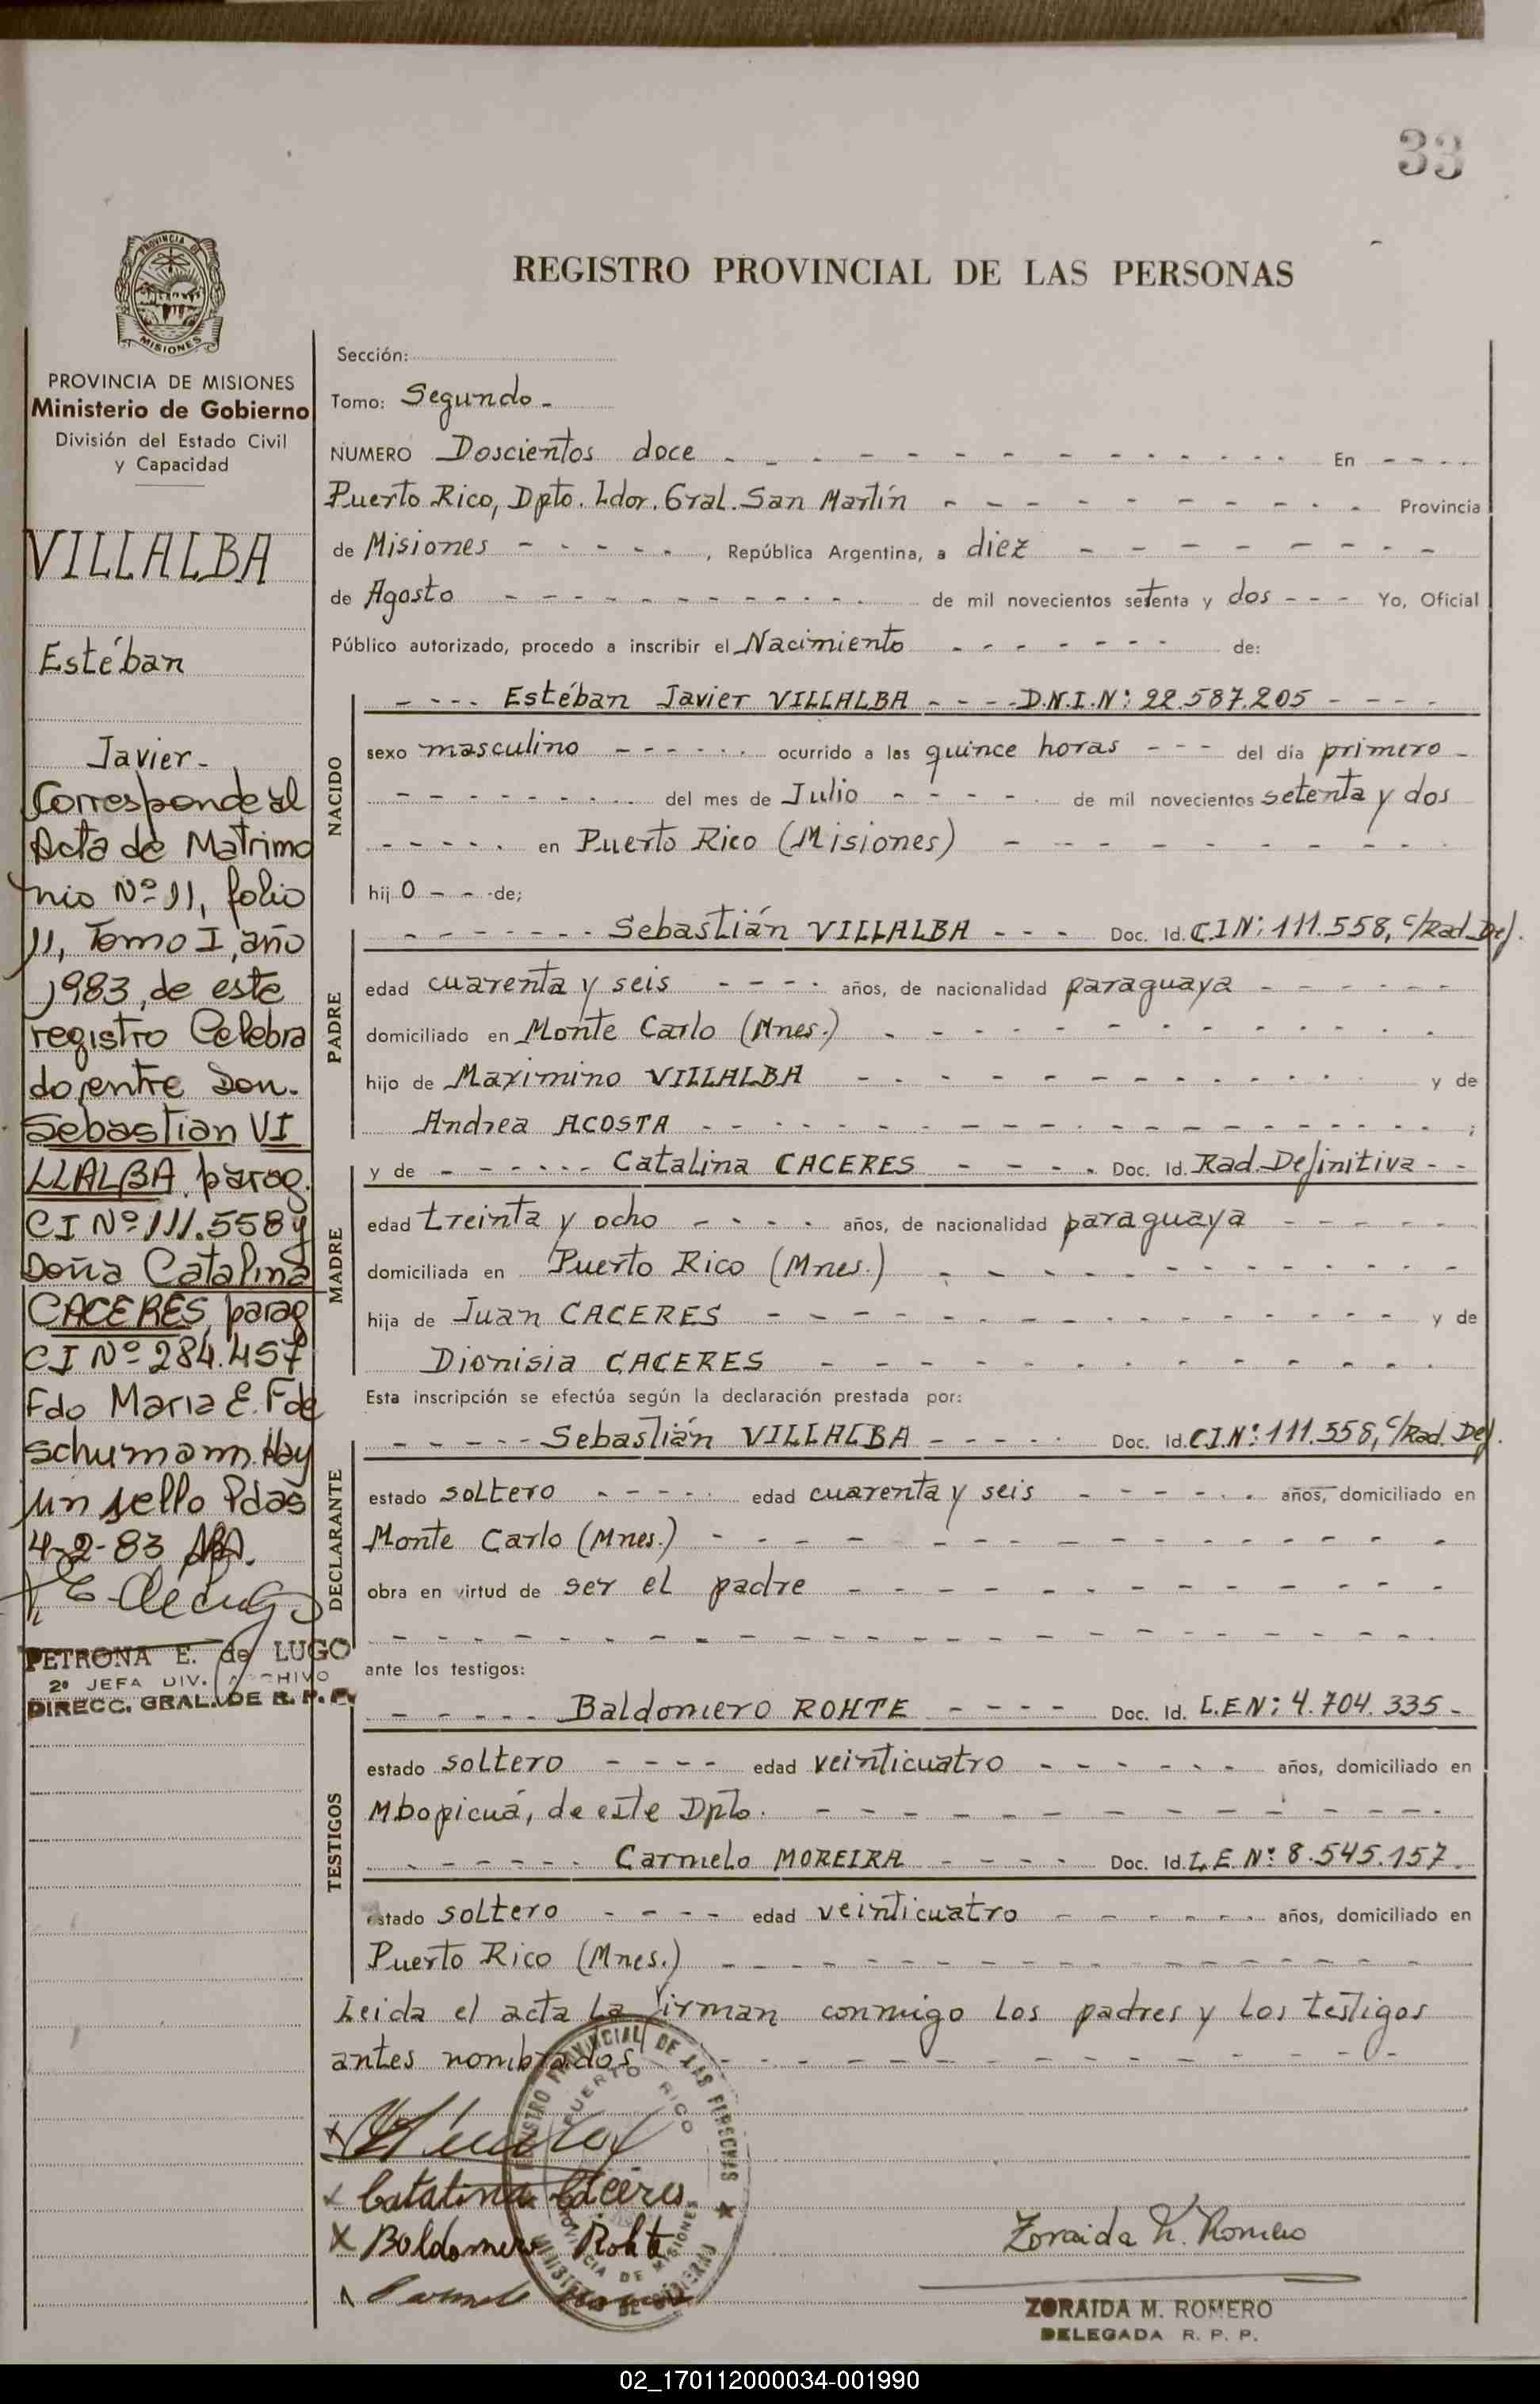 33
REGISTRO PROVINCIAL DE LAS PERSONAS
PROVINCIA DE MISIONES
PROVINCIA DE MISIONES
Ministerio de Gobierno
División del Estado Civil
y Capacidad
VILLALBA
Estéban
Javier-
Corresponde al
Acta de Matrimo
nio Nº 11, folio
11, Tomo I, año
1983, de este
registro Celebra
do entre Don.
Sebastian VI
LLALBA, parag.
CI Nº 111.558 y
Doña Catalina
CACERES, parag
CI Nº 284.457
Fdo Maria E. F de
Schumann. Hay
un sello Pdas
4-2-83
PETRONA E. de LUGO
2º JEFA DIV. ARCHIVO
DIRECC. GRAL. DE R. P. P.
Sección:
Tomo: Segundo -
NUMERO Doscientos doce - - - En - - -
Puerto Rico, Dpto. Ldor. Gral. San Martín - - - Provincia
de Misiones - - - , República Argentina, a diez - - -
de Agosto - - - de mil novecientos setenta y dos - - - Yo, Oficial
Público autorizado, procedo a inscribir el Nacimiento - - - de:
NACIDO
- - - Estéban Javier VILLALBA - - - D.N.I.Nº: 22.587.205 - - -
sexo masculino - - - ocurrido a las quince horas - - - del día primero -
- - - del mes de Julio - - - de mil novecientos setenta y dos
- - - en Puerto Rico (Misiones) - - -
hijo - - - de;
PADRE
- - - Sebastián VILLALBA - - - Doc. Id. C.I Nº: 111.558, c/Rad. Def.
edad cuarenta y seis - - - años, de nacionalidad paraguaya - - -
domiciliado en Monte Carlo (Mnes.) - - -
hijo de Maximino VILLALBA - - - y de
Andrea ACOSTA - - - ;
MADRE
y de - - - Catalina CACERES - - - Doc. Id. Rad. Definitiva - -
edad treinta y ocho - - - años, de nacionalidad paraguaya - - -
domiciliada en Puerto Rico (Mnes.) - - -
hija de Juan CACERES - - - y de
Dionisia CACERES - - -
Esta inscripción se efectúa según la declaración prestada por:
DECLARANTE
- - - Sebastián VILLALBA - - - Doc. Id. C.I.Nº: 111.558, c/Rad. Def.
estado soltero - - - edad cuarenta y seis - - - años, domiciliado en
Monte Carlo (Mnes.) - - -
obra en virtud de ser el padre - - -
- - -
ante los testigos:
TESTIGOS
- - - Baldomero ROHTE - - - Doc. Id. L.E Nº: 4.704.335 -
estado soltero - - - edad veinticuatro - - - años, domiciliado en
Mbopicuá, de este Dpto. - - -
- - - Carmelo MOREIRA - - - Doc. Id. L.E. Nº: 8.545.157.
estado soltero - - - edad veinticuatro - - - años, domiciliado en
Puerto Rico (Mnes.) - - -
Leida el acta la firman conmigo los padres y los testigos
antes nombrados - - -
REGISTRO PROVINCIAL DE LAS PERSONAS
PUERTO RICO
PROVINCIA DE MISIONES
MINISTERIO DE GOBIERNO
x Catalina Cáceres
x Baldomero Rohte
Zoraida M. Romero
ZORAIDA M. ROMERO
DELEGADA R. P. P.
02_170112000034-001990